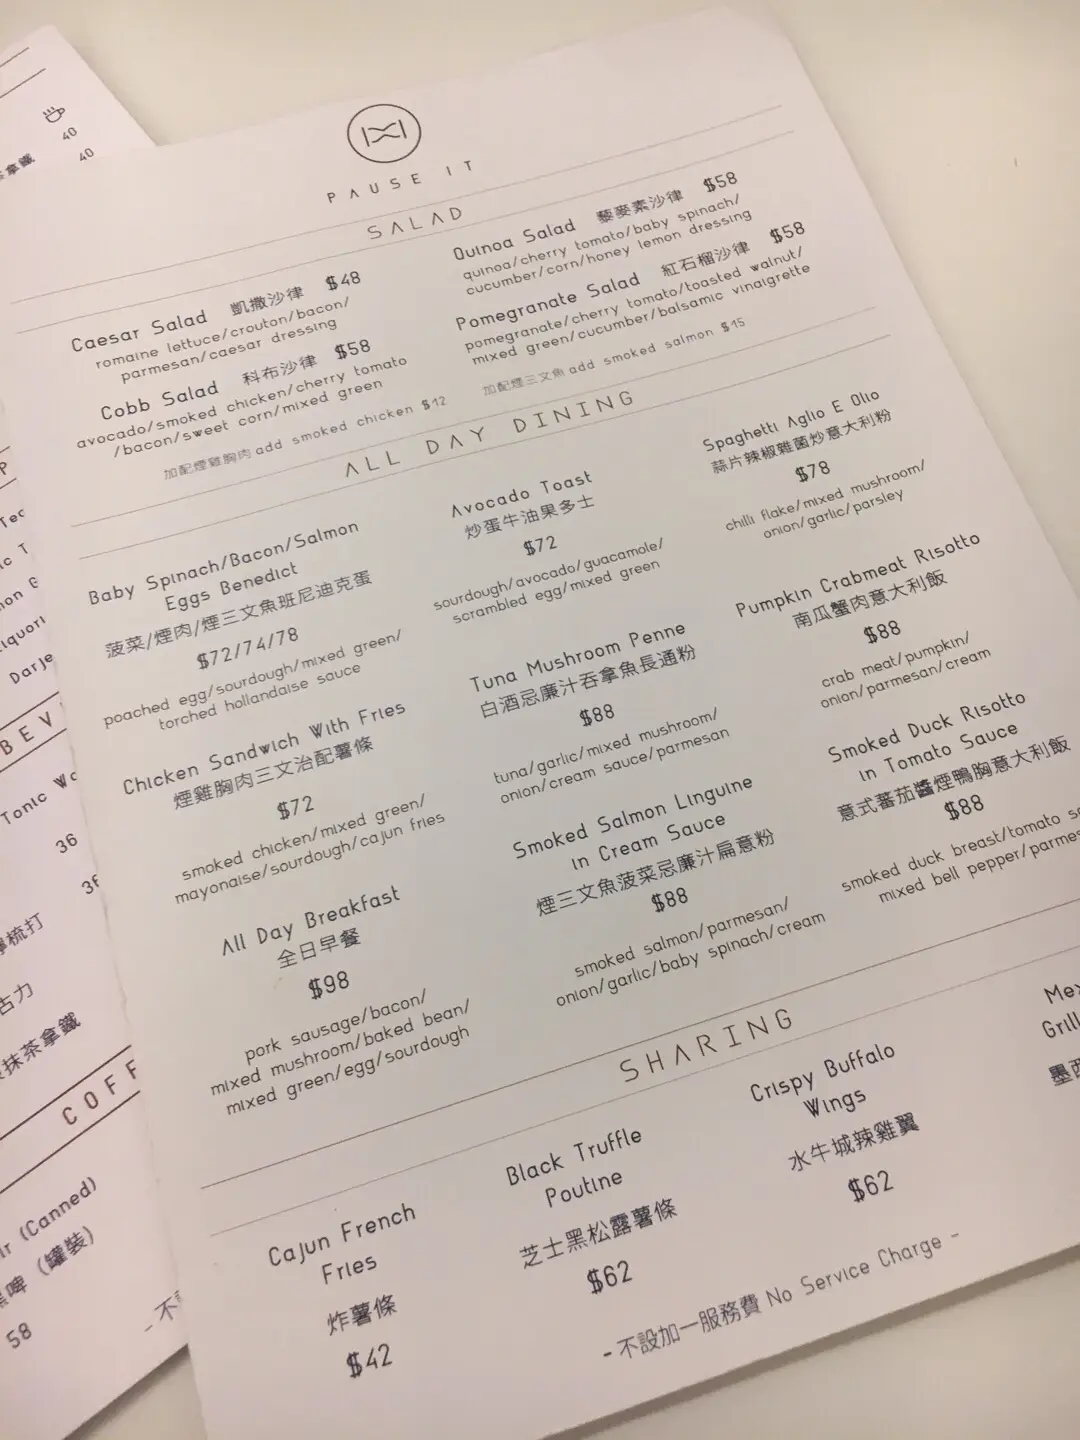 PAUSE IT
SALAD
Caesar Salad 凱撒沙律 $48
romaine lettuce/crouton/bacon/
parmesan/caesar dressing
Cobb Salad 科布沙律 $58
avocado/smoked chicken/cherry tomato
/bacon/sweet corn/mixed green
加配煙雞胸肉 add smoked chicken $12
Quinoa Salad 藜麥素沙律 $58
quinoa/cherry tomato/baby spinach/
cucumber/corn/honey lemon dressing
Pomegranate Salad 紅石榴沙律 $58
pomegranate/cherry tomato/toasted walnut/
mixed green/cucumber/balsamic vinaigrette
加配煙三文魚 add smoked salmon $15
ALL DAY DINING
Baby Spinach/Bacon/Salmon
Eggs Benedict
菠菜/煙肉/煙三文魚班尼迪克蛋
$72/74/78
poached egg/sourdough/mixed green/
torched hollandaise sauce
Chicken Sandwich With Fries
煙雞胸肉三文治配薯條
$72
smoked chicken/mixed green/
mayonaise/sourdough/cajun fries
All Day Breakfast
全日早餐
$98
pork sausage/bacon/
mixed mushroom/baked bean/
mixed green/egg/sourdough
Avocado Toast
炒蛋牛油果多士
$72
sourdough/avocado/guacamole/
scrambled egg/mixed green
Tuna Mushroom Penne
白酒忌廉汁吞拿魚長通粉
$88
tuna/garlic/mixed mushroom/
onion/cream sauce/parmesan
Smoked Salmon Linguine
in Cream Sauce
煙三文魚菠菜忌廉汁扁意粉
$88
smoked salmon/parmesan/
onion/garlic/baby spinach/cream
Spaghetti Aglio E Olio
蒜片辣椒雜菌炒意大利粉
$78
chilli flake/mixed mushroom/
onion/garlic/parsley
Pumpkin Crabmeat Risotto
南瓜蟹肉意大利飯
$88
crab meat/pumpkin/
onion/parmesan/cream
Smoked Duck Risotto
in Tomato Sauce
意式蕃茄醬煙鴨胸意大利飯
$88
smoked duck breast/tomato
mixed bell pepper/parmes
SHARING
Cajun French
Fries
炸薯條
$42
Black Truffle
Poutine
芝士黑松露薯條
$62
Crispy Buffalo
Wings
水牛城辣雞翼
$62
Mex
Grill
墨西
- 不設加一服務費 No Service Charge -
40
拿鐵 40
Darje
BEV
Tonic Wa
36
36
梳打
古力
抹茶拿鐵
COFF
(Canned)
啤 (罐裝)
58
- 不